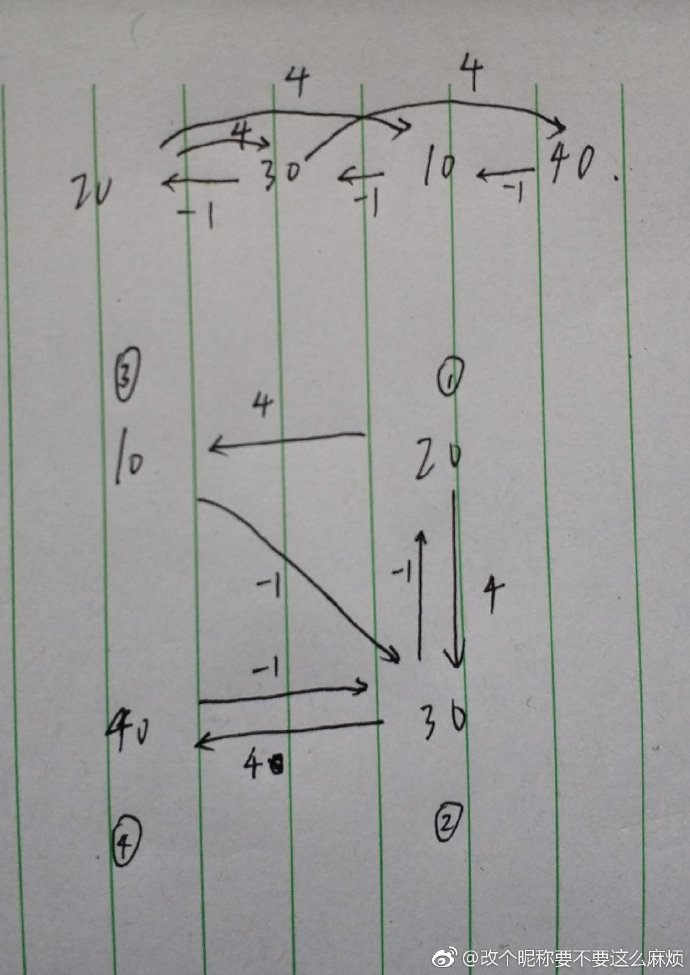 4 4
4
20 30 10 40.
-1 -1 -1
③ ①
4
10 20
-1 -1 4
-1
40 30
4
④ ②
@改个昵称要不要这么麻烦